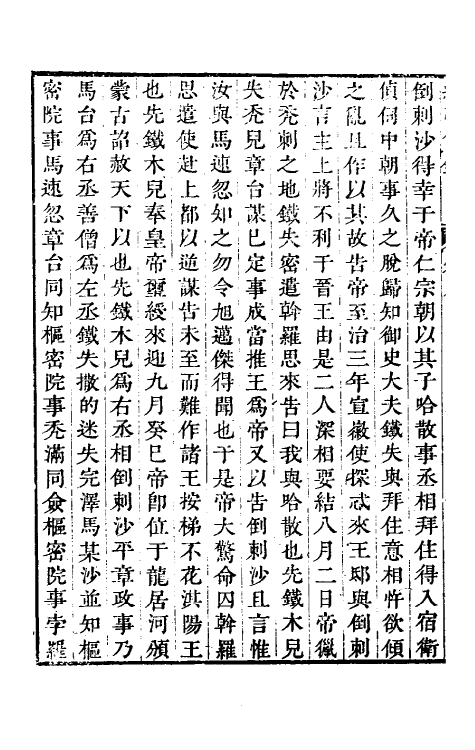 倒刺沙得幸于帝仁宗朝以其子哈散事丞相拜住得入宿衛
偵伺中朝事久之脫歸知御史大夫鐵失與拜住意相忤欲傾
之亂且作以其故告帝至治三年宣徽使探忒來王邸與倒刺
沙言主上將不利于晉王由是二人深相要結八月二日帝獵
於禿刺之地鐵失密遣斡羅思來告曰我與哈散也先鐵木兒
失禿兒章台謀已定事成當推王爲帝又以告倒刺沙且言惟
汝與馬速忽知之勿令旭邁傑得聞也于是帝大驚命囚斡羅
思遣使赴上都以逆謀告未至而難作諸王按梯不花淇陽王
也先鐵木兒奉皇帝璽綬來迎九月癸巳帝卽位于龍居河頒
蒙古詔赦天下以也先鐵木兒爲右丞相倒刺沙平章政事乃
馬台爲右丞善僧爲左丞鐵失撒的迷失完澤馬某沙並知樞
密院事馬速忽章台同知樞密院事禿滿同僉樞密院事孛羅